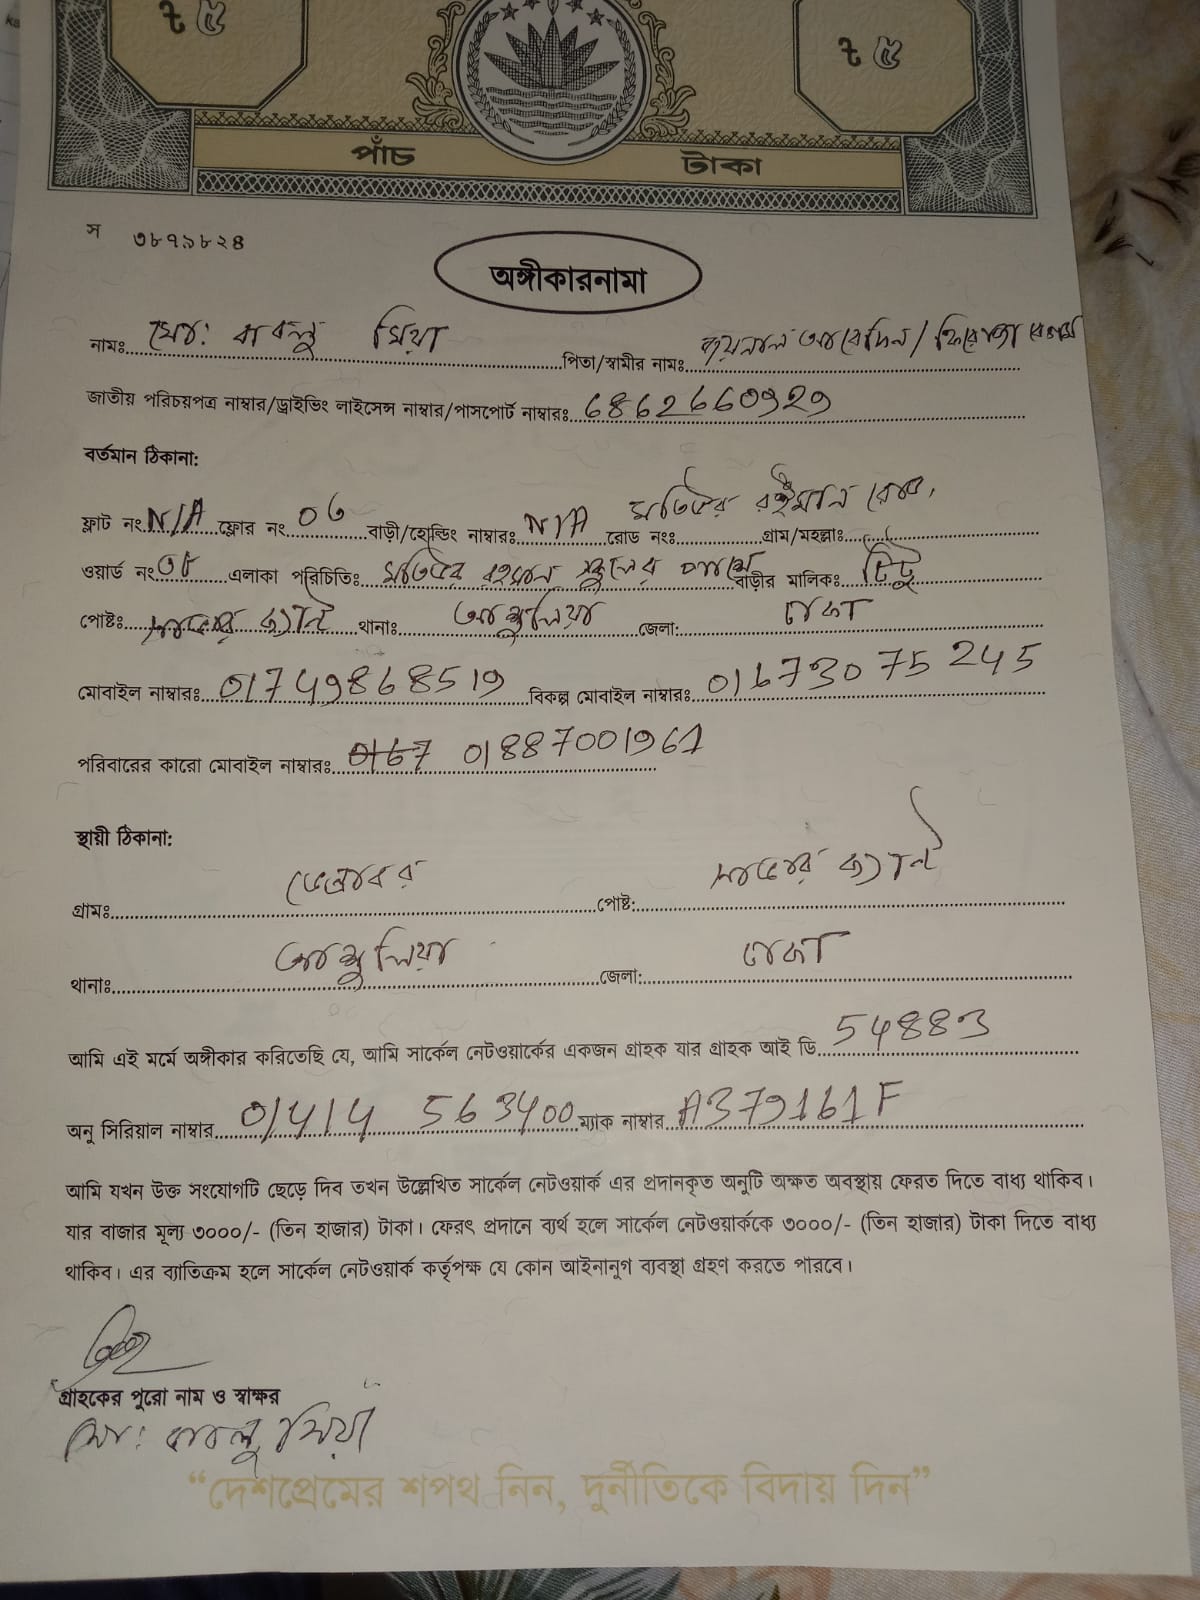 ৳ ৫ ৳ ৫
পাঁচ টাকা
স ৩৮৭৯৮২৪
অঙ্গীকারনামা
নামঃ মোঃ বাবলু মিয়া পিতা/স্বামীর নামঃ জয়নাল আবেদিন / ফিরোজা বেগম
জাতীয় পরিচয়পত্র নাম্বার/ড্রাইভিং লাইসেন্স নাম্বার/পাসপোর্ট নাম্বারঃ 6862660929
বর্তমান ঠিকানা:
ফ্লাট নং N/A ফ্লোর নং 06 বাড়ী/হোল্ডিং নাম্বারঃ N/A রোড নংঃ মতিউর রহমান রোড, গ্রাম/মহল্লাঃ
ওয়ার্ড নং ০৮ এলাকা পরিচিতিঃ মতিউর রহমান স্কুলের পাশে বাড়ীর মালিক: টিটু
পোষ্টঃ সাভার ক্যান্ট থানাঃ আশুলিয়া জেলা: ঢাকা
মোবাইল নাম্বারঃ 01749868519 বিকল্প মোবাইল নাম্বারঃ 01673075245
পরিবারের কারো মোবাইল নাম্বারঃ 0167 01887001961
স্থায়ী ঠিকানা:
গ্রামঃ পোষ্ট: সাভার ক্যান্ট
থানাঃ আশুলিয়া জেলা: ঢাকা
আমি এই মর্মে অঙ্গীকার করিতেছি যে, আমি সার্কেল নেটওয়ার্কের একজন গ্রাহক যার গ্রাহক আই ডি 54883
অনু সিরিয়াল নাম্বার 01414 563400 ম্যাক নাম্বার A379161F
আমি যখন উক্ত সংযোগটি ছেড়ে দিব তখন উল্লেখিত সার্কেল নেটওয়ার্ক এর প্রদানকৃত অনুটি অক্ষত অবস্থায় ফেরত দিতে বাধ্য থাকিব।
যার বাজার মূল্য ৩০০০/- (তিন হাজার) টাকা। ফেরৎ প্রদানে ব্যর্থ হলে সার্কেল নেটওয়ার্ককে ৩০০০/- (তিন হাজার) টাকা দিতে বাধ্য
থাকিব। এর ব্যাতিক্রম হলে সার্কেল নেটওয়ার্ক কর্তৃপক্ষ যে কোন আইনানুগ ব্যবস্থা গ্রহণ করতে পারবে।
গ্রাহকের পুরো নাম ও স্বাক্ষর
মোঃ বাবলু মিয়া
“দেশপ্রেমের শপথ নিন, দুর্নীতিকে বিদায় দিন”